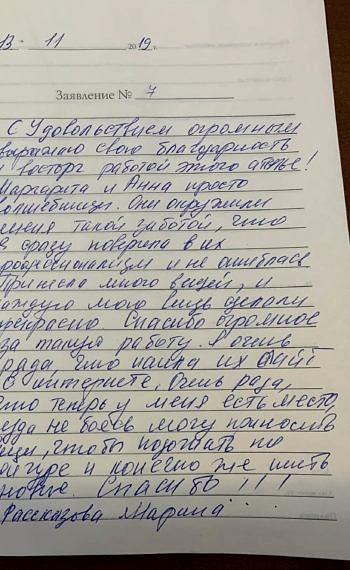 13 " 11 2019 г.
Заявление № 7
С Удовольствием огромным
выражаю свою благодарность
и восторг работой этого ателье!
Маргарита и Анна просто
волшебницы. Они окружили
меня такой заботой, что
я сразу поверила в их
профессионализм и не ошиблась
Принесла много вещей, и
каждую мою вещь сделали
прекрасно. Спасибо огромное
за такую работу. Я очень
рада, что нашла их сайт
в интернете, Очень рада,
что теперь у меня есть место,
куда не боясь могу приносить
вещи, чтобы подогнать по
фигуре и конечно же шить
новые. Спасибо!!!
Рассказова Марина